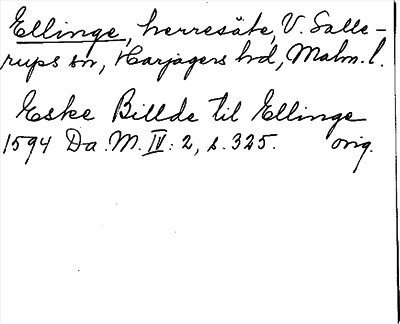 Ellinge, herresäte, V. Salle-
rups sn, Harjagers hd, Malm. l.
Eske Billde til Ellinge
1594 Da. M. IV: 2, s. 325. orig.